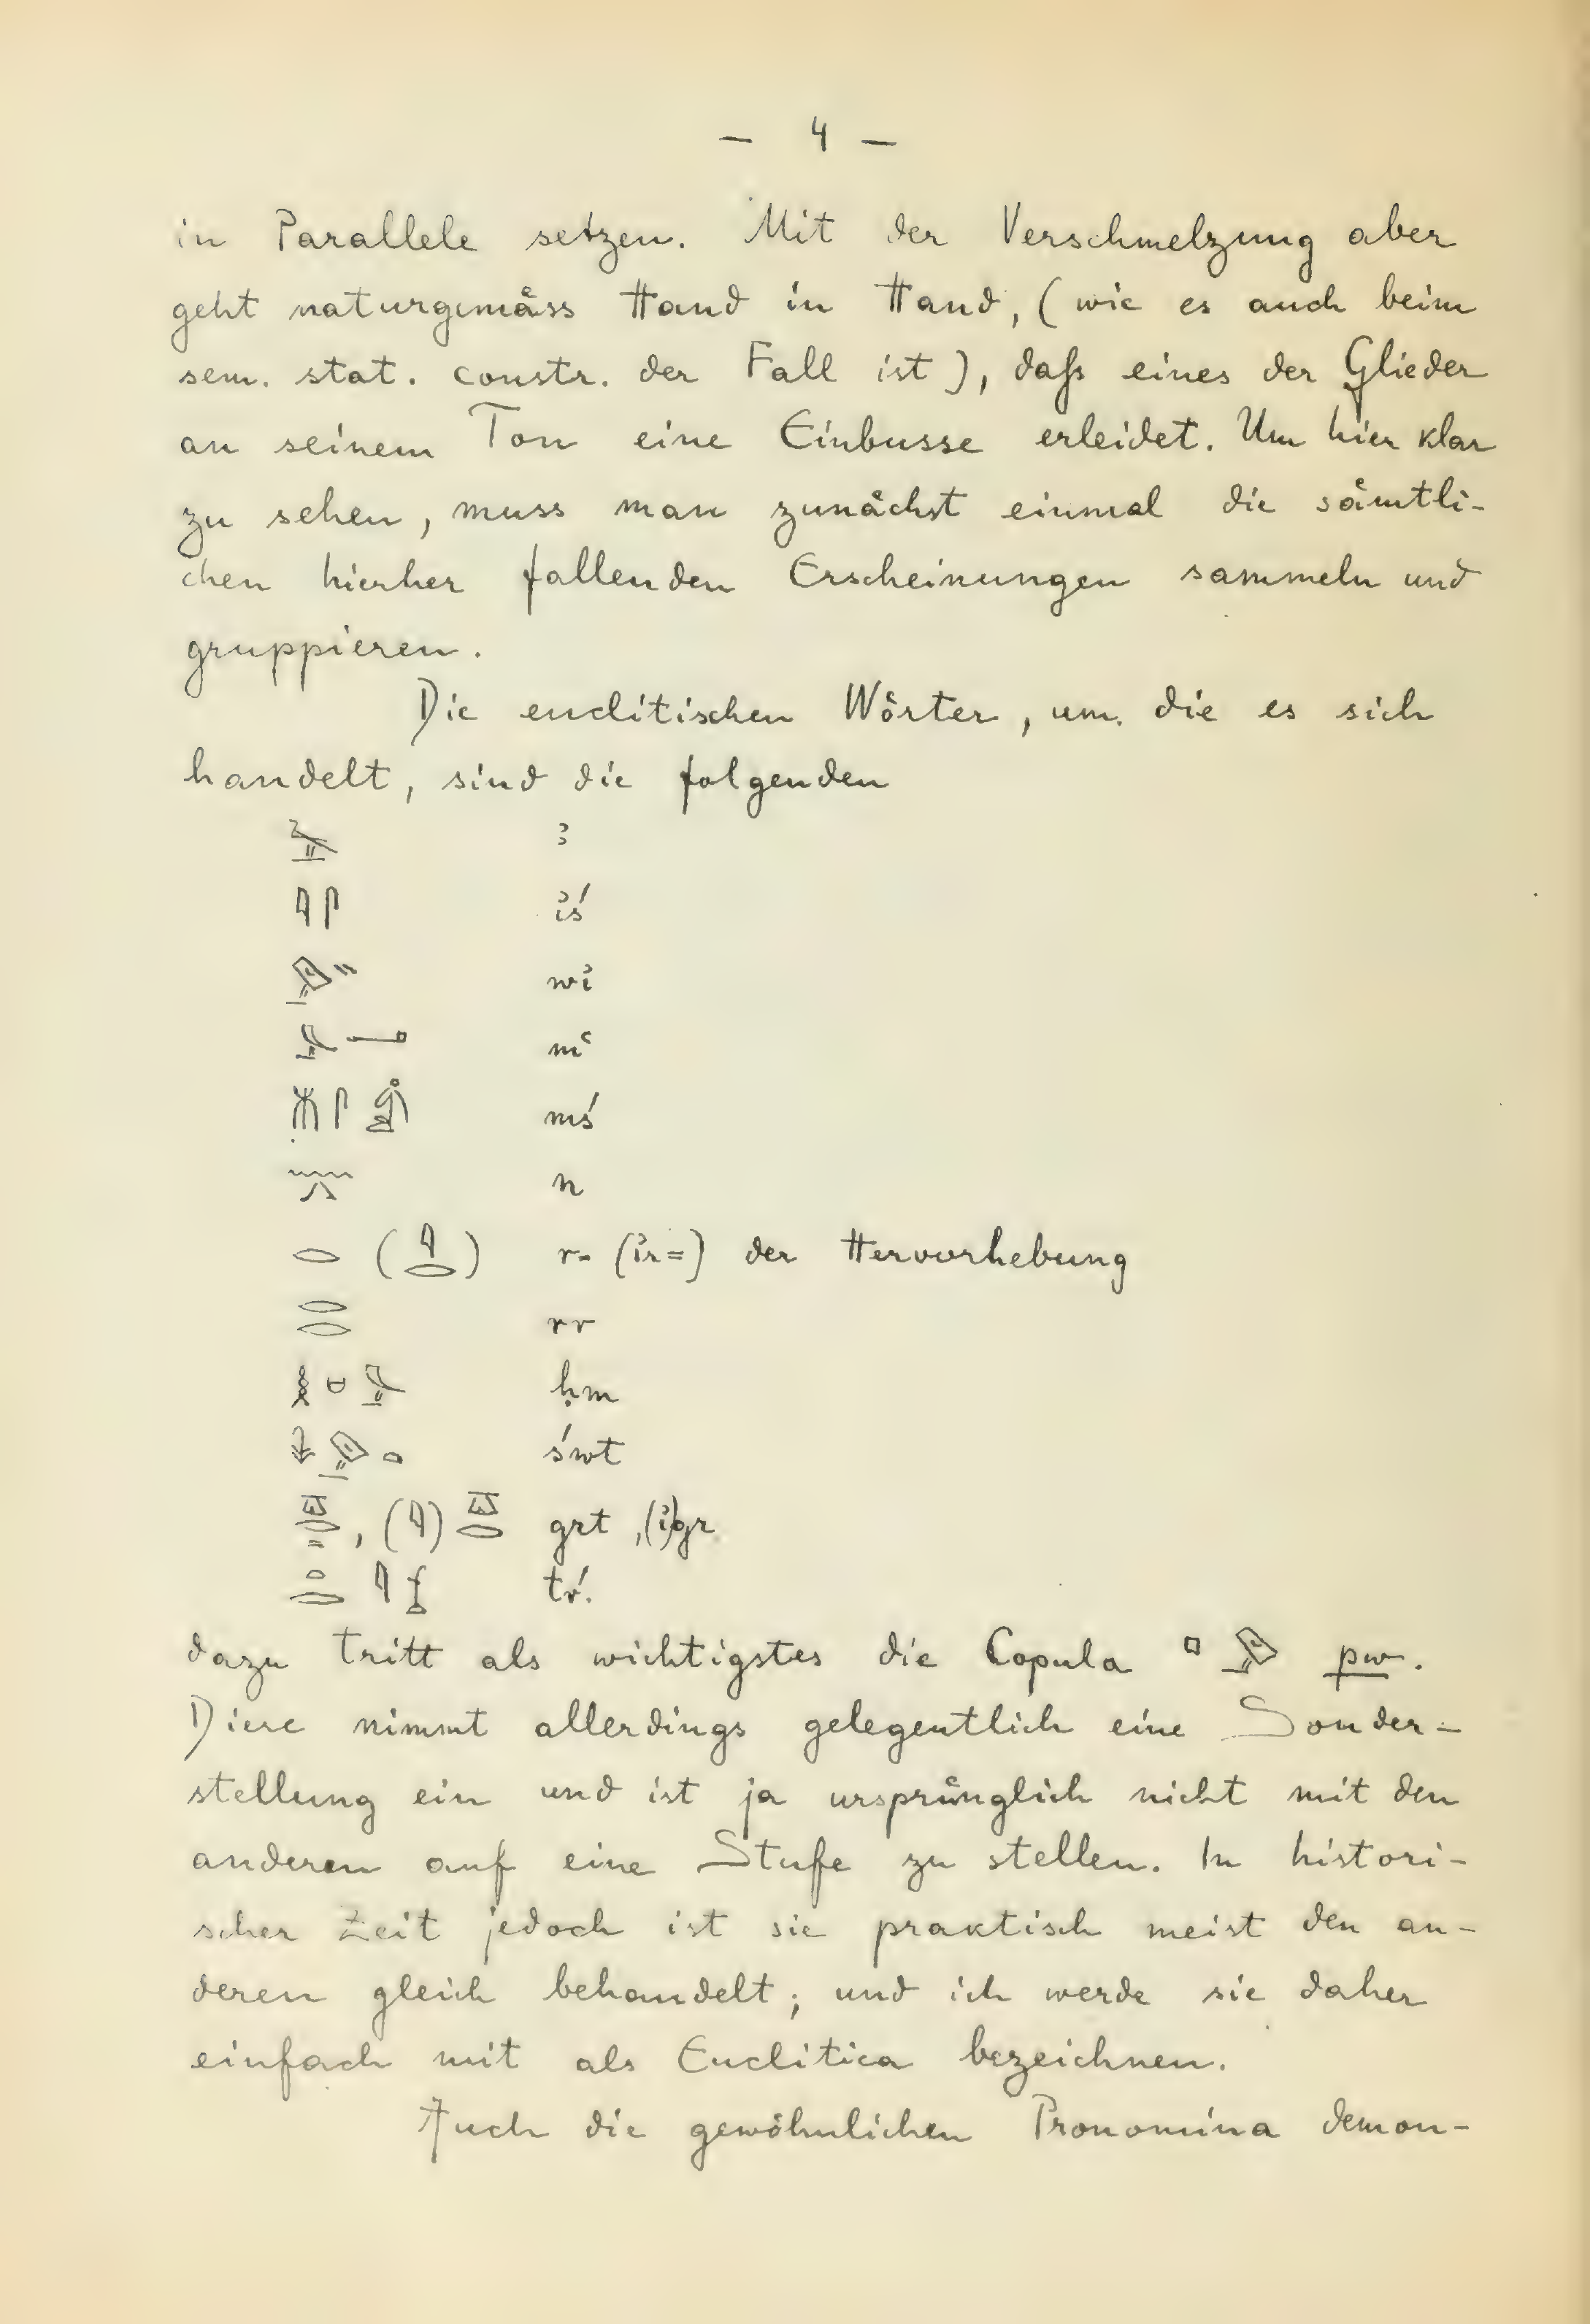 — 4 —
in Parallele setzen. Mit der Verschmelzung aber
geht naturgemäss Hand in Hand, (wie es auch beim
sem. stat. constr. der Fall ist), daß eines der Glieder
an seinem Ton eine Einbusse erleidet. Um hier klar
zu sehen, muss man zunächst einmal die sämtli-
chen hierher fallenden Erscheinungen sammeln und
gruppieren.
Die enclitischen Wörter, um die es sich
handelt, sind die folgenden
ꜣ
𓇋𓋴 ꞽś
wꞽ
mꜥ
mś
𓈖 n
𓂋 (𓇋𓂋) r- (ꞽr=) der Hervorhebung
𓂋𓂋 rr
ḥm
śwt
grt, (ꞽ)gr
tŕ.
dazu tritt als wichtigstes die Copula pw.
Diese nimmt allerdings gelegentlich eine Sonder-
stellung ein und ist ja ursprünglich nicht mit den
anderen auf eine Stufe zu stellen. In histori-
scher Zeit jedoch ist sie praktisch meist den an-
deren gleich behandelt; und ich werde sie daher
einfach mit als Enclitica bezeichnen.
Auch die gewöhnlichen Pronomina demon-